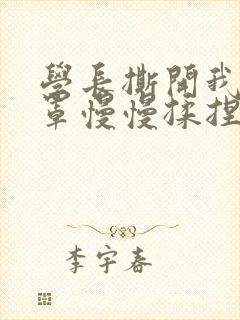 學長撕開我
罩慢慢揉捏
李宇春